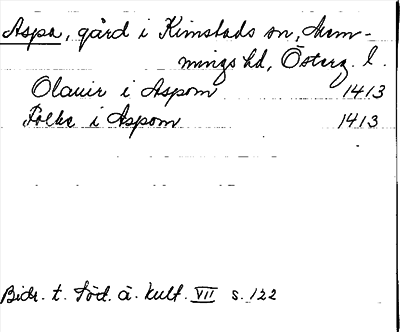 Aspa, gård i Kimstads sn, Mem-
mings hd, Österg. l.
Olauir i Aspom 1413
Folke i Aspom 1413
Bidr. t. Söd. ä. kult. VII s. 122